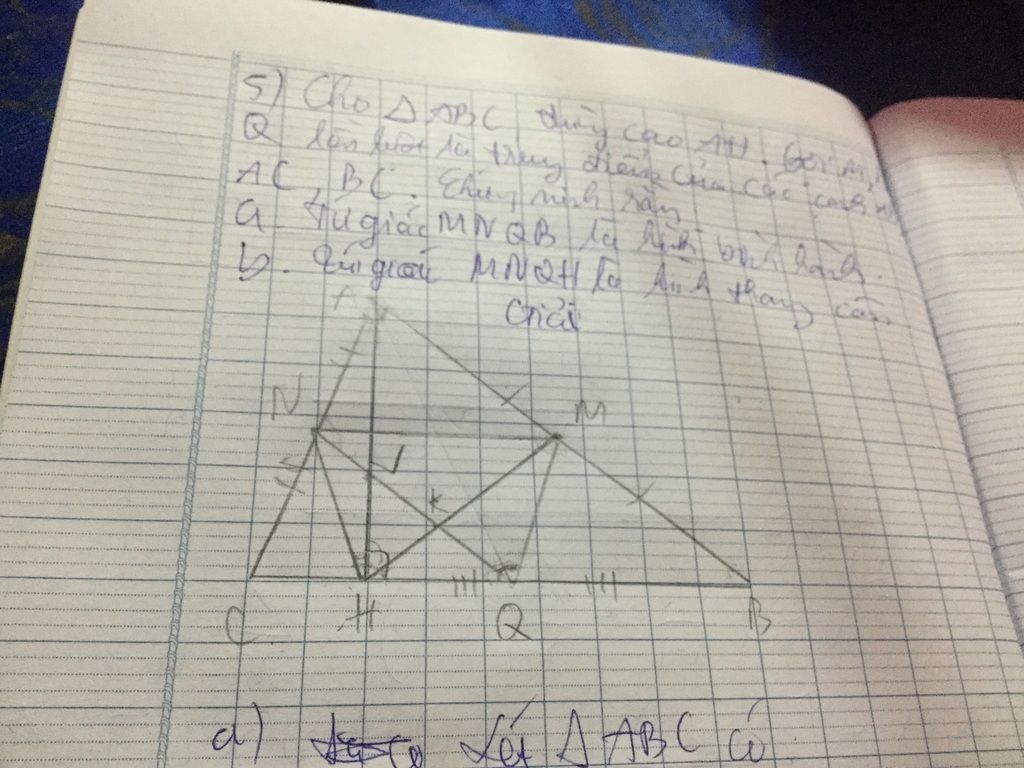 5) Cho Δ ABC đường cao AH. Gọi M,
Q lần lượt là trung điểm của các cạnh
AC, BC. Chứng minh rằng
a. Tứ giác MNQB là hình bình hành.
b. Tứ giác MNQH là hình thang cân.
Giải
A
N
M
K
C
H
Q
B
a)
Xét Δ ABC có